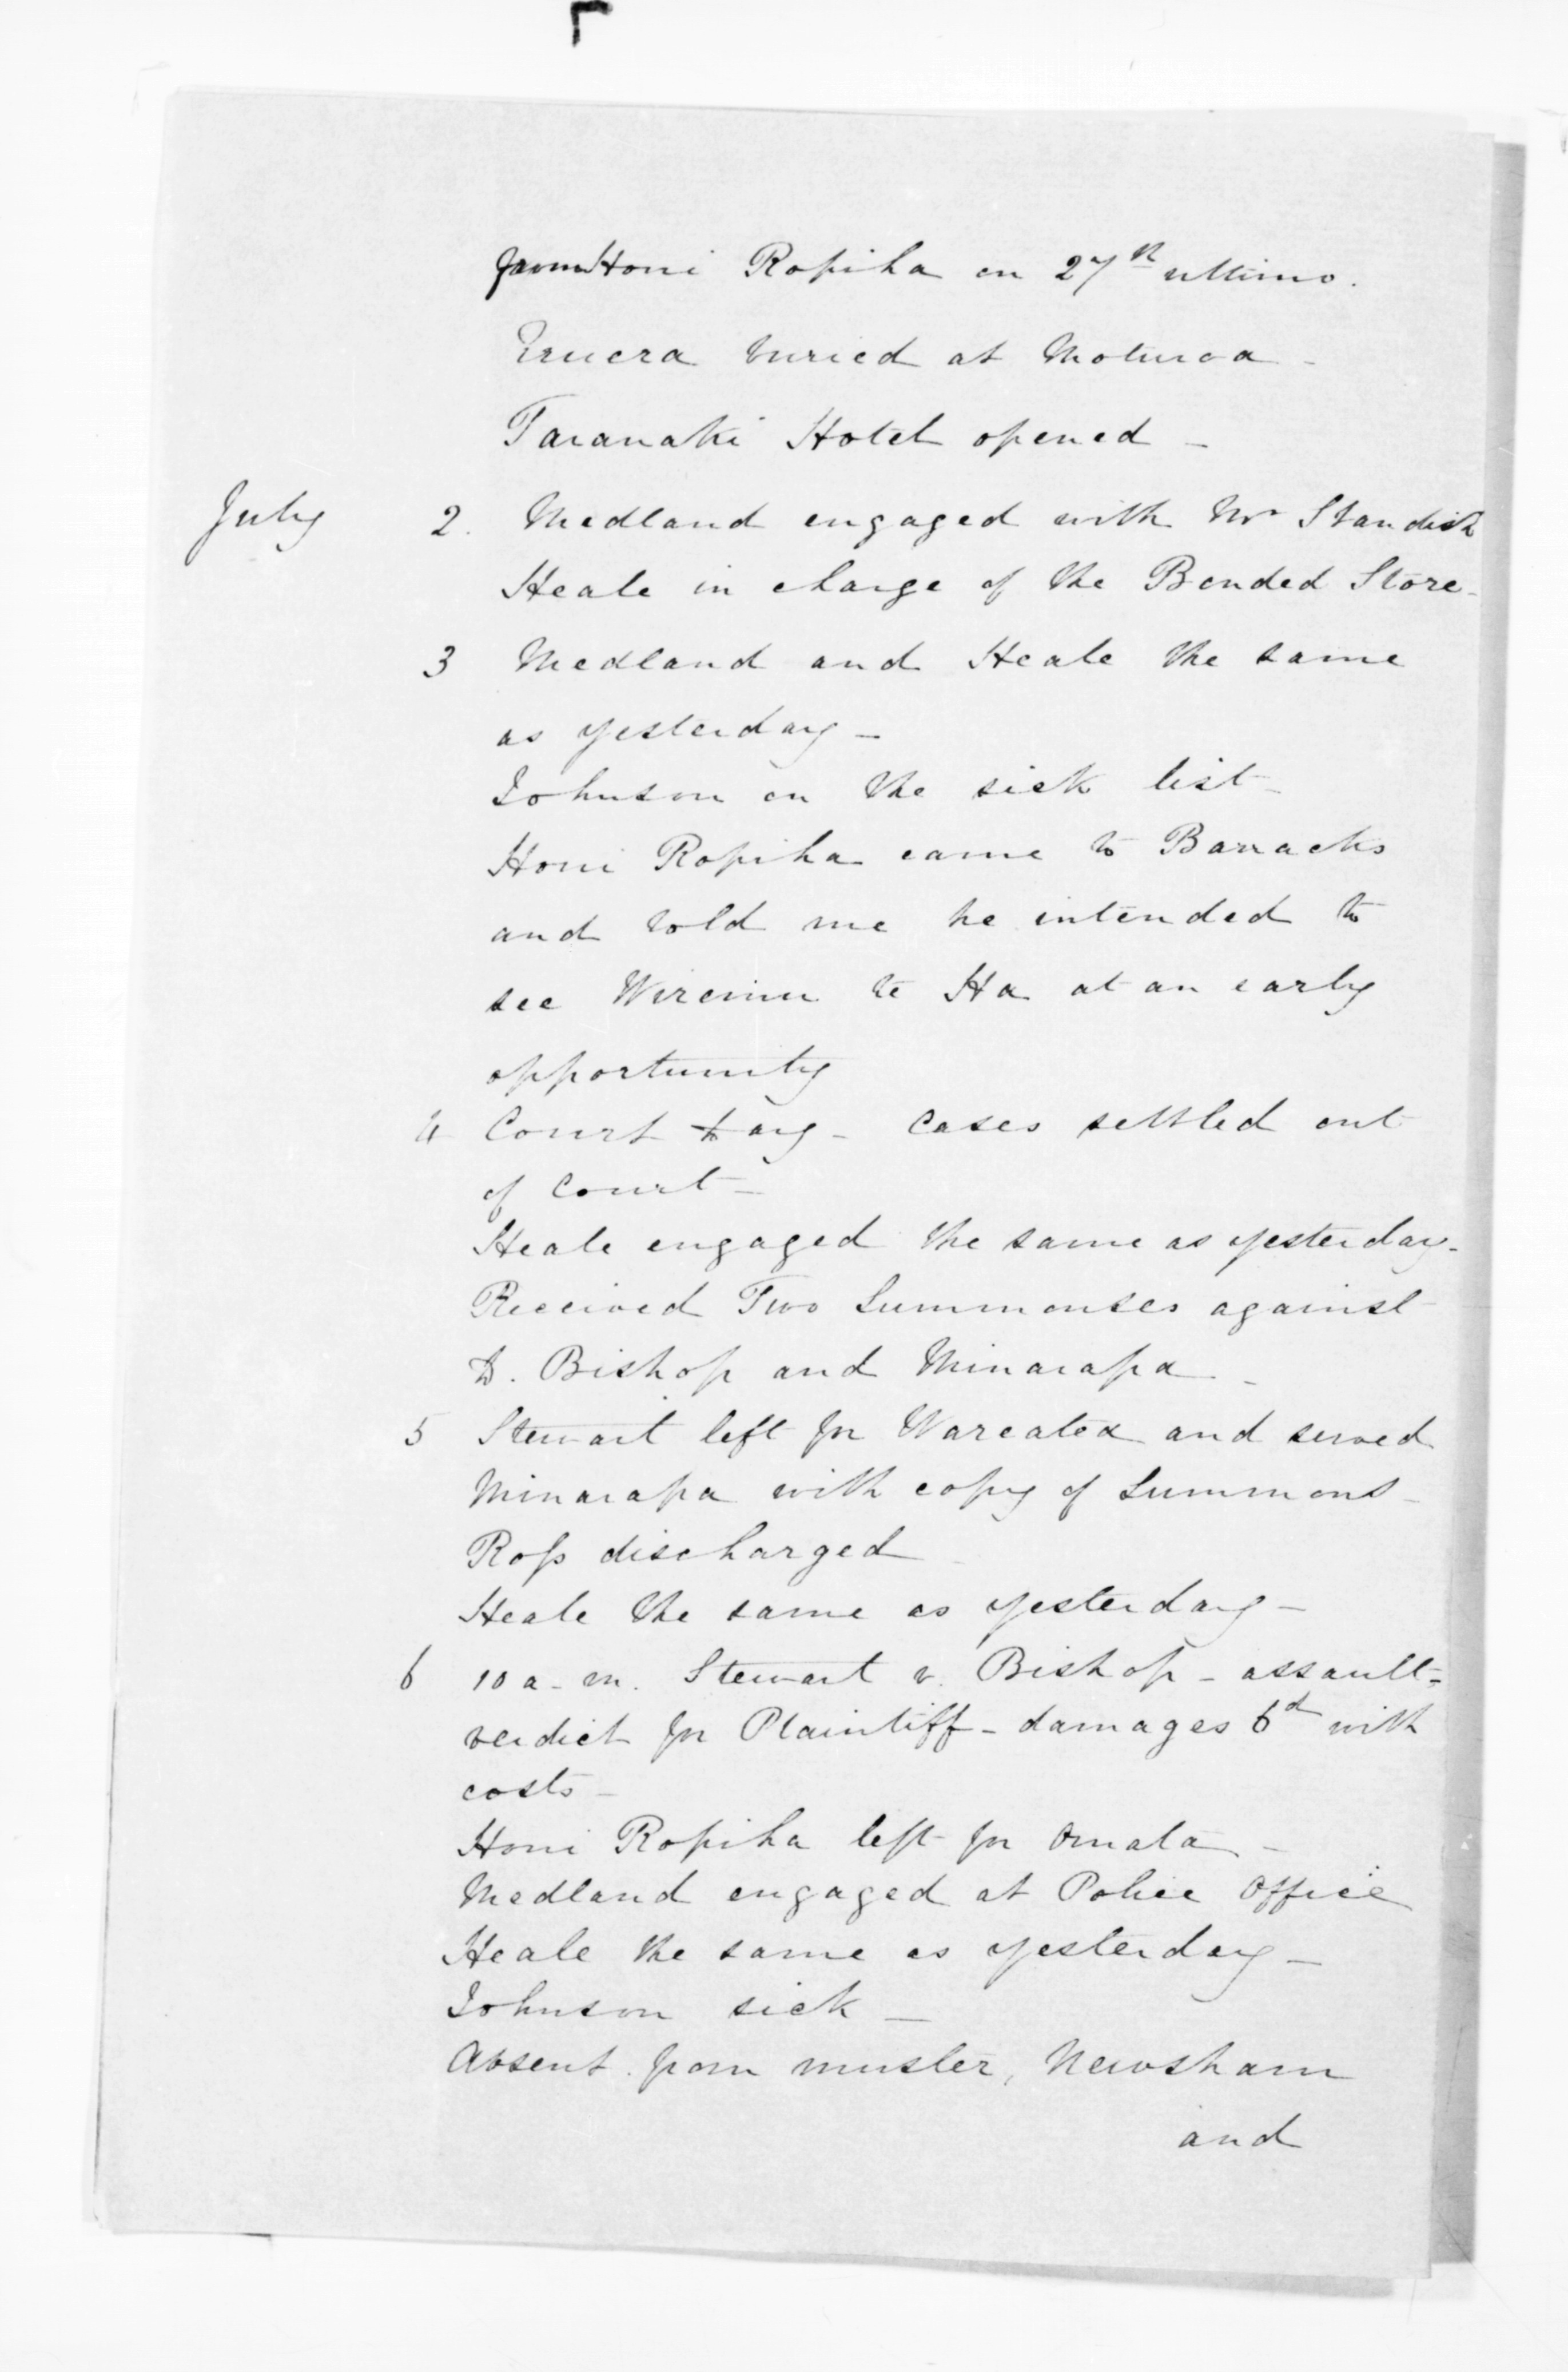 from Honi Ropiha on 27th ultimo.
Eruera buried at Moturoa -
Taranaki Hotel opened -
July 2. Medland engaged with Mr Standish
Heale in charge of the Bonded Store -
3 Medland and Heale the same
as yesterday -
Johnson on the sick list -
Honi Ropiha came to Barracks
and told me he intended to
see Wiremu te Ha at an early
opportunity
4 Court Day - Cases settled out
of Court -
Heale engaged the same as yesterday -
Received Two Summonses against
D. Bishop and Minarapa -
5 Stewart left for Wareatea and served
Minarapa with copy of Summons -
Ross discharged -
Heale the same as yesterday -
6 10 a.m. Stewart v. Bishop - assault -
verdict for Plaintiff - damages 6d with
costs -
Honi Ropiha left for Omata -
Medland engaged at Police Office
Heale the same as yesterday -
Johnson sick -
Absent from muster, Newsham
and